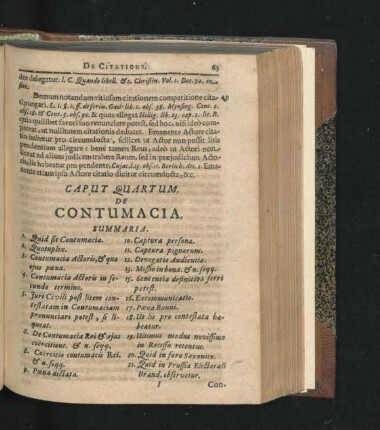 DE CITATIONE. 65
des delegatur. l. C. Quando libell. & c. Christin. Vol. 1. Dec. 50. in
fine.
Demum notandum vitiosam citationem comparitione cita-
ti purgari. L. 1. §. 1. ff. de feriis. Gail lib. 1. obs. 48. Mynsing. Cent. 2.
obs. 18. & Cent. 5. obs. 90. & quos allegat lib. 15. cap. 2. lit. R.
Potis quilibet favori suo renunciare potest, sed hoc, nisi ideo com-
pareat, ut nullitatem citationis deducat. Emanente Actore cita-
tio habetur pro circumducta, scilicet ut Actor non possit litis
pendentiam allegare: bene tamen Reus, adeò ut Actori non
liceat ad alium judicem trahere Reum, sed in præjudicium Acto-
ris, lis habeatur pro pendente. Berlich. dec. 1. Ema-
nente etiam ipso Actore citatio dicitur circumducta, &c.
CAPUT QUARTUM.
DE
CONTUMACIA.
SUMMARIA.
1. Quid sit Contumacia.
2. Quotuplex.
3. Contumacia Actoris, & quæ
ejus pœna.
4. Contumacia Actoris in se-
cundo termino.
5. Jure Civili post litem con-
testatam in Contumaciam
pronunciari potest, si li-
queat.
6. De Contumacia Rei & ejus
coërcitione. & n. seqq.
8. Coërcitio contumacis Rei.
& n. seqq.
9. Pœna dictata.
10. Captura personæ.
11. Captura pignorum.
12. Denegatio Audientiæ.
13. Missio in bona. & n. seqq.
15. Sententia definitiva ferri
potest.
16. Excommunicatio.
17. Pœna Banni.
18. Ut lis pro contestata ha-
beatur.
19. Ultimus modus novissimo
in Recessu retentus.
20. Quid in foro Saxonico.
21. Quid in Prussia Electorali
Brand. observetur.
I Con-